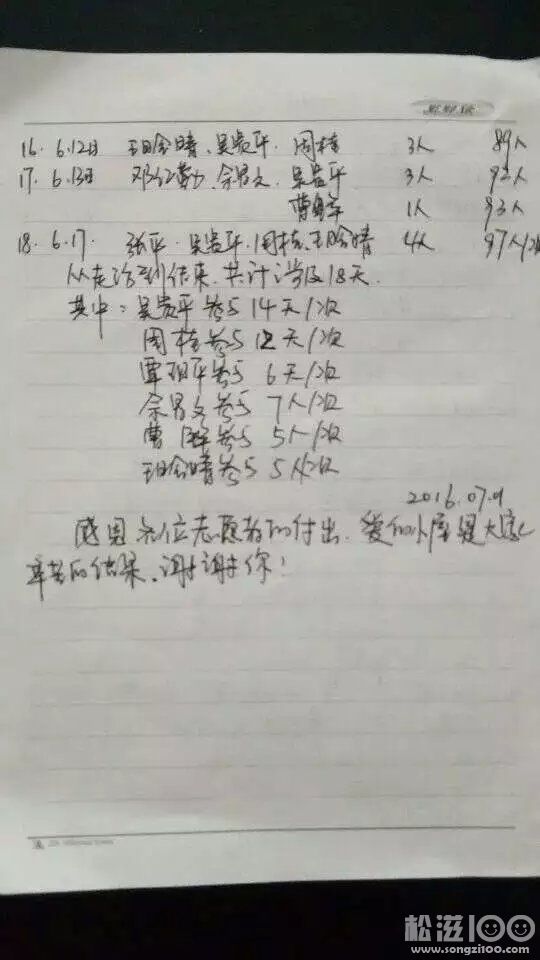 16. 6.12日 王晗晴. 吴贵平. 周桂 3人 89人
17. 6.13日 邓红勤. 佘昌文. 吴贵平 3人 92人
曹 1人 93人
18. 6.17. 张平. 吴贵平. 周桂. 王晗晴 4人 97人/次
从走访到结束. 共计涉及18天.
其中: 吴贵平参与14天/次
周桂参与12天/次
覃 平参与 6天/次
佘昌文参与 7人/次
曹 参与 5人/次
王晗晴参与 5人/次
2016.07.
感恩各位志愿者的付出. 爱的小屋是大家
辛苦的结果. 谢谢你!
松滋100
www.songzi100.com